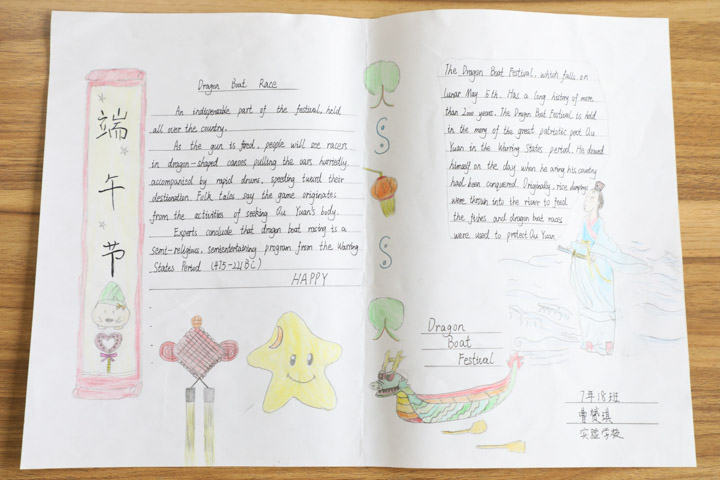 端
午
节
Dragon Boat Race
An indispensable part of the festival, held
all over the country.
As the gun is fired, people will see racers
in dragon-shaped canoes pulling the oars hurriedly,
accompanied by rapid drums, speeding toward their
destination. Folk tales say the game originates
from the activities of seeking Qu Yuan's body.
Experts conclude that dragon boat racing is a
semi-religious, semientertaining program from the Warring
States Period (475-221BC)
HAPPY
The Dragon Boat Festival, which falls on
lunar May 5th. Has a long history of more
than 2000 years. The Dragon Boat Festival is held
in the mery of the great patriotic poet Qu
Yuan in the Warring States period. He drowed
himself on the day when he
his country
had been conquered. Originally, rice dumplings
were thrown into the river to feed
the fishes and dragon boat races
were used to protect Qu Yuan.
Dragon
Boat
Festival
7年18班
曹
琪
实验学校